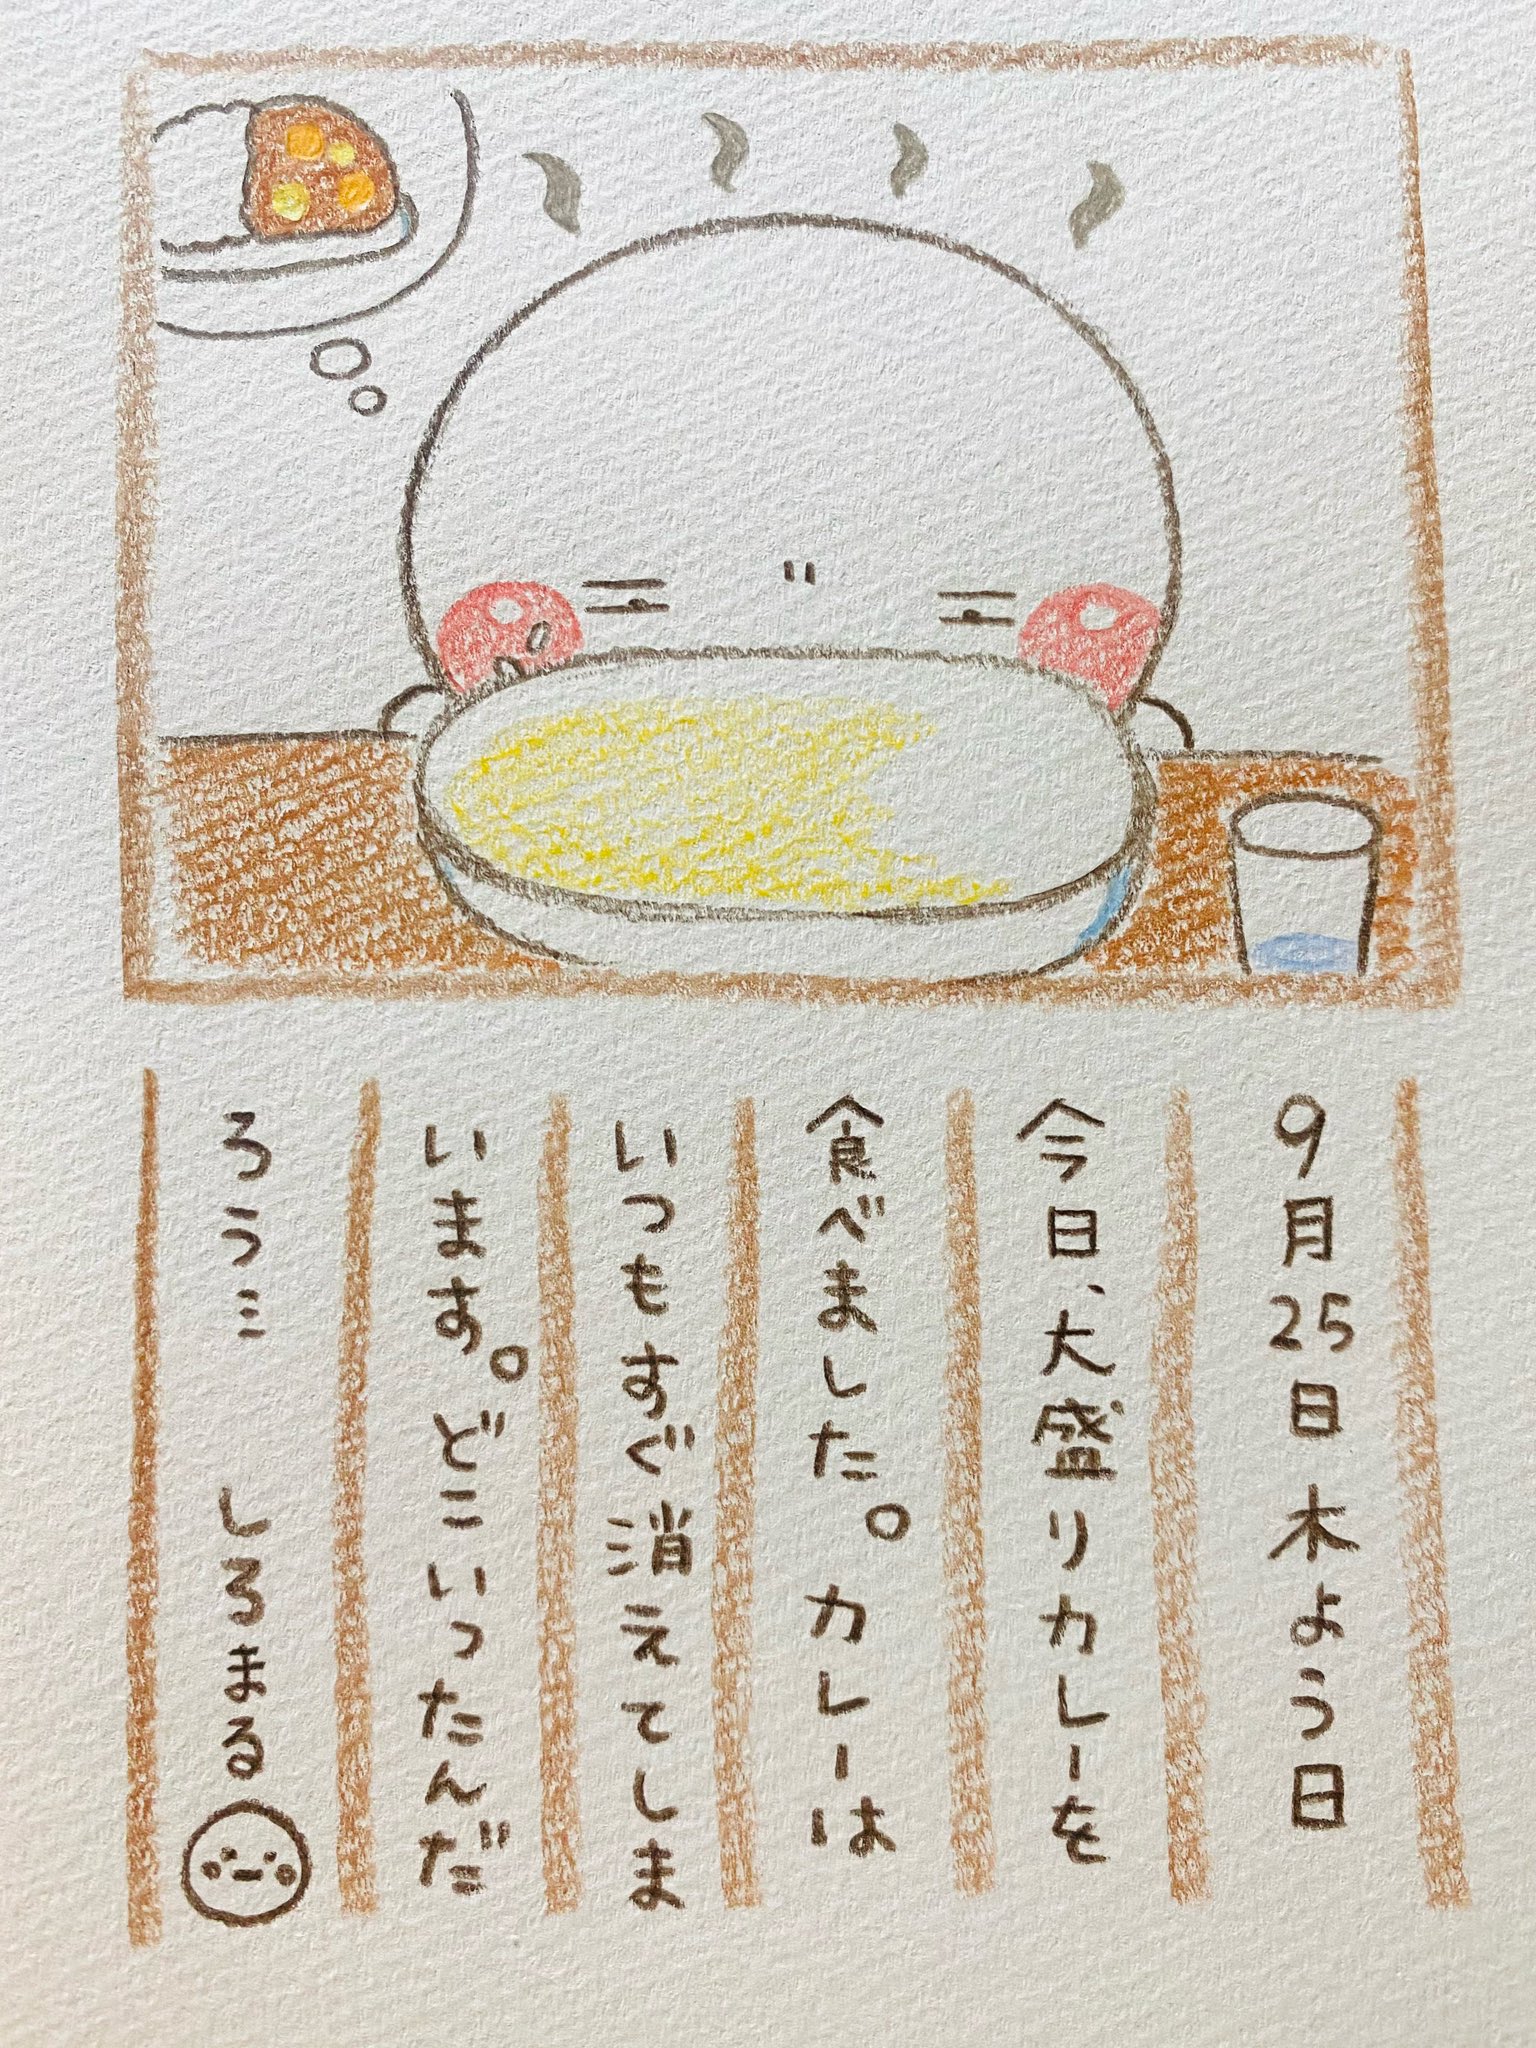 9月25日 木よう日
今日、大盛りカレーを
食べました。カレーは
いつもすぐ消えてしま
います。どこいったんだ
ろう… しろまる